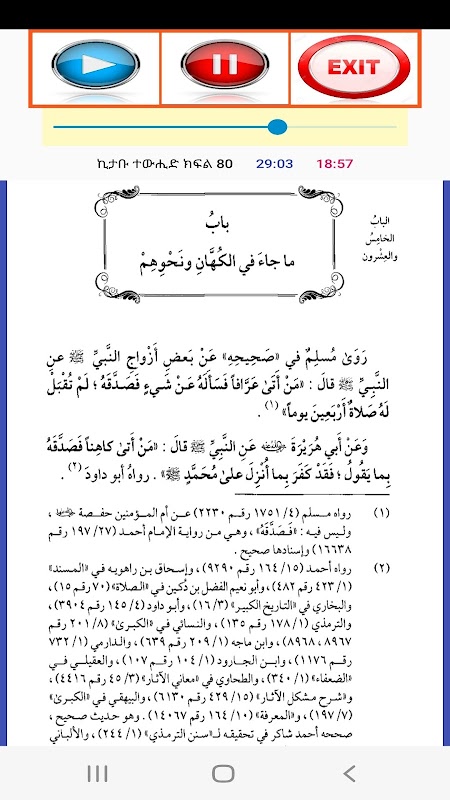 EXIT
ኪታቡ ተውሒድ ክፍል 80 29:03 18:57
البابُ
الخامِسُ
والعِشْرون
بابُ
ما جاءَ في الكُهَّانِ ونَحْوِهِمْ
رَوَىٰ مُسلِمٌ في «صَحِيحِهِ» عَنْ بَعضِ أزْواجِ النَّبيِّ ﷺ عنِ
النَّبيِّ ﷺ قالَ : «مَنْ أَتَىٰ عَرَّافاً فَسَأَلَهُ عَنْ شَيءٍ فَصَدَّقَهُ ؛ لَمْ تُقْبَلْ
لَهُ صَلاةٌ أَرْبَعِينَ يوماً» (١) .
وَعَنْ أَبي هُرَيْرَةَ رضي الله عنه عَنِ النَّبيِّ ﷺ قالَ : «مَنْ أتىٰ كاهِناً فَصَدَّقَهُ
بِما يَقُولُ ؛ فَقَدْ كَفَرَ بِما أُنْزِلَ علىٰ مُحَمَّدٍ ﷺ» . رواهُ أبو داودَ (٢) .
(١) رواه مسلم (٤/ ١٧٥١ رقم ٢٢٣٠) عن أم المؤمنين حفصة رضي الله عنها ،
وليس فيه : «فَصَدَّقَهُ» ، وهي من رواية الإمام أحمد (٢٧/ ١٩٧ رقم
١٦٦٣٨) وإسنادها صحيح .
(٢) رواه أحمد (١٥/ ١٦٤ رقم ٩٢٩٠) ، وإسحاق بن راهويه في «المسند»
(١/ ٤٢٣ رقم ٤٨٢) ، وأبو نعيم الفضل بن دُكين في «الصلاة» (٧٠ رقم ١٥) ،
والبخاري في «التاريخ الكبير» (٣/ ١٦) ، وأبو داود (٤/ ١٤٥ رقم ٣٩٠٤) ،
والترمذي (١/ ١٧٨ رقم ١٣٥) ، والنسائي في «الكبرىٰ» (٨/ ٢٠١ رقم
٨٩٦٧ ، ٨٩٦٨) ، وابن ماجه (١/ ٢٠٩ رقم ٦٣٩) ، والدارمي (١/ ٧٣٢
رقم ١١٧٦) ، وابن الجارود (١/ ١٠٤ رقم ١٠٧) ، والعقيلي في
«الضعفاء» (١/ ٣٤٠) ، والطحاوي في «معاني الآثار» (٣/ ٤٥ رقم ٤٤١٦) ،
و«شرح مشكل الآثار» (١٥/ ٤٢٩ رقم ٦١٣٠) ، والبيهقي في «الكبرىٰ»
(٧/ ١٩٧) ، و«المعرفة» (١٠/ ١٦٤ رقم ١٤٠٦٧) . وهو حديث صحيح ،
صححه أحمد شاكر في تحقيقه لـ«سنن الترمذي» (١/ ٢٤٤) ، والألباني